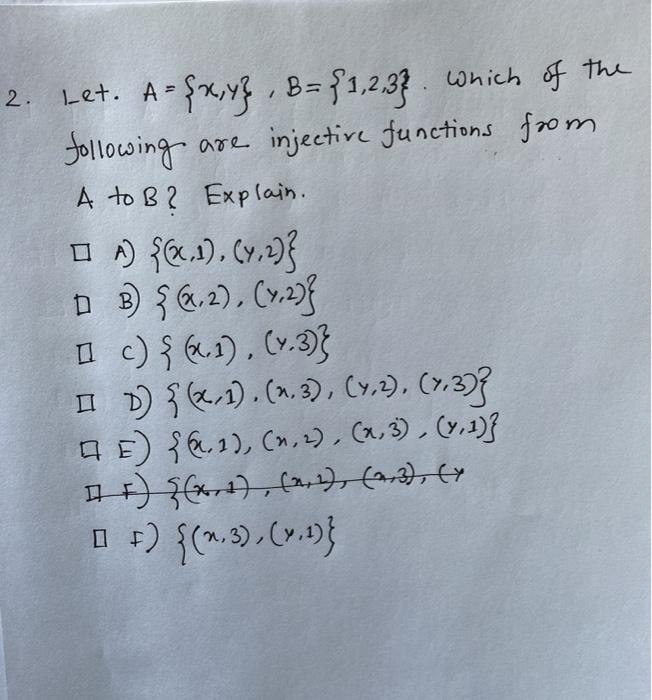 2. Let. A = {x,y}, B = {1,2,3}. Which of the
following are injective functions from
A to B? Explain.
□ A) {(x,1), (y,2)}
□ B) {(x,2), (y,2)}
□ C) {(x,1), (y,3)}
□ D) {(x,1), (x,3), (y,2), (y,3)}
□ E) {(x,1), (x,2), (x,3), (y,1)}
□ F) {(x,1), (x,2), (x,3), (y
□ F) {(x,3), (y,1)}